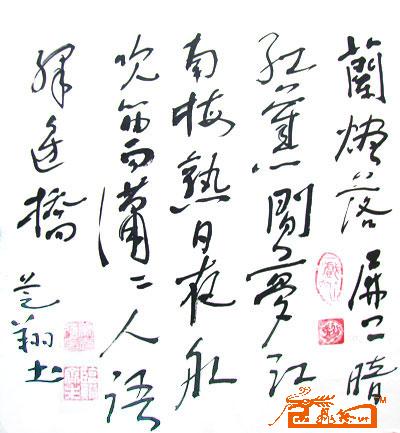 蘭燼落屏上暗
紅蕉閒夢江
南梅熟日夜船
吹笛雨瀟々人語
驛邊橋
芝翔书